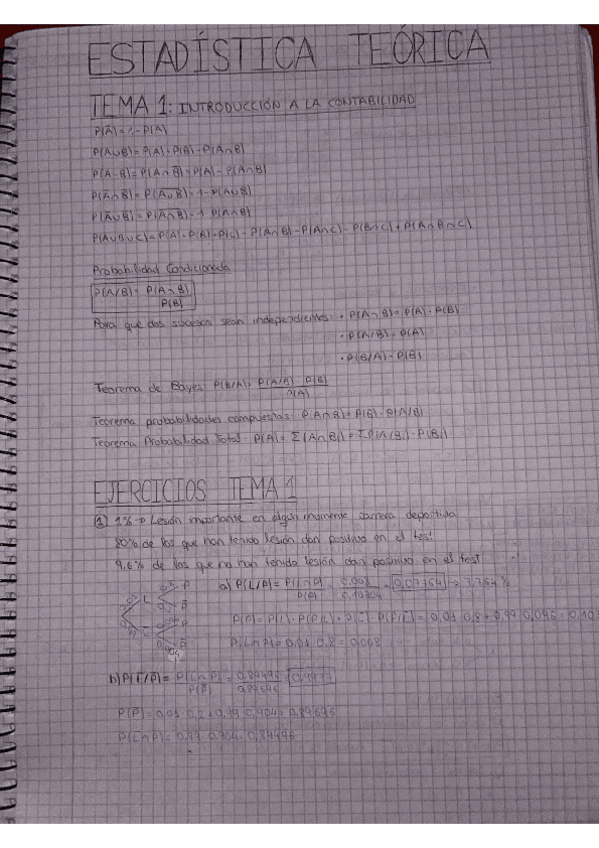 ESTADÍSTICA TEÓRICA
TEMA 1: INTRODUCCIÓN A LA CONTABILIDAD
P(Ā)=1-P(A)
P(A∪B)=P(A)+P(B)-P(A∩B)
P(A-B)=P(A∩B̄)=P(A)-P(A∩B)
P(Ā∩B̄)=P(A∪B)=1-P(A∪B)
P(Ā∪B̄)=P(A∩B)=1-P(A∩B)
P(A∪B∪C)=P(A)+P(B)+P(C)-P(A∩B)-P(A∩C)-P(B∩C)+P(A∩B∩C)
Probabilidad Condicionada
P(A/B)=P(A∩B)
P(B)
Para que dos sucesos sean independientes: • P(A∩B)=P(A)·P(B)
• P(A/B)=P(A)
• P(B/A)=P(B)
Teorema de Bayes: P(B/A)= P(A/B)·P(B)
P(A)
Teorema probabilidades compuestas: P(A∩B)=P(B)·P(A/B)
Teorema Probabilidad Total: P(A)= Σ(A∩Bi)=Σ P(A/Bi)·P(Bi)
EJERCICIOS TEMA 1
① 1%→ Lesión importante en algún momento carrera deportiva
80% de los que han tenido lesión dan positivo en el test
9,6% de los que no han tenido lesión dan positivo en el test
a) P(L/P)= P(L∩P) = 0,008 = 0,07764 → 7,764%
P(P)
P(P)=P(L)·P(P/L)+P(L̄)·P(P/L̄)= 0,01·0,8+0,99·0,096=0,10
P(L∩P)=0,01·0,8=0,008
b) P(L̄/P̄)= P(L̄∩P̄) = 0,89496
P(P̄) 0,89696
P(P̄)=0,01·0,2+0,99·0,904=0,89696
P(L̄∩P̄)=0,99·0,904=0,89496